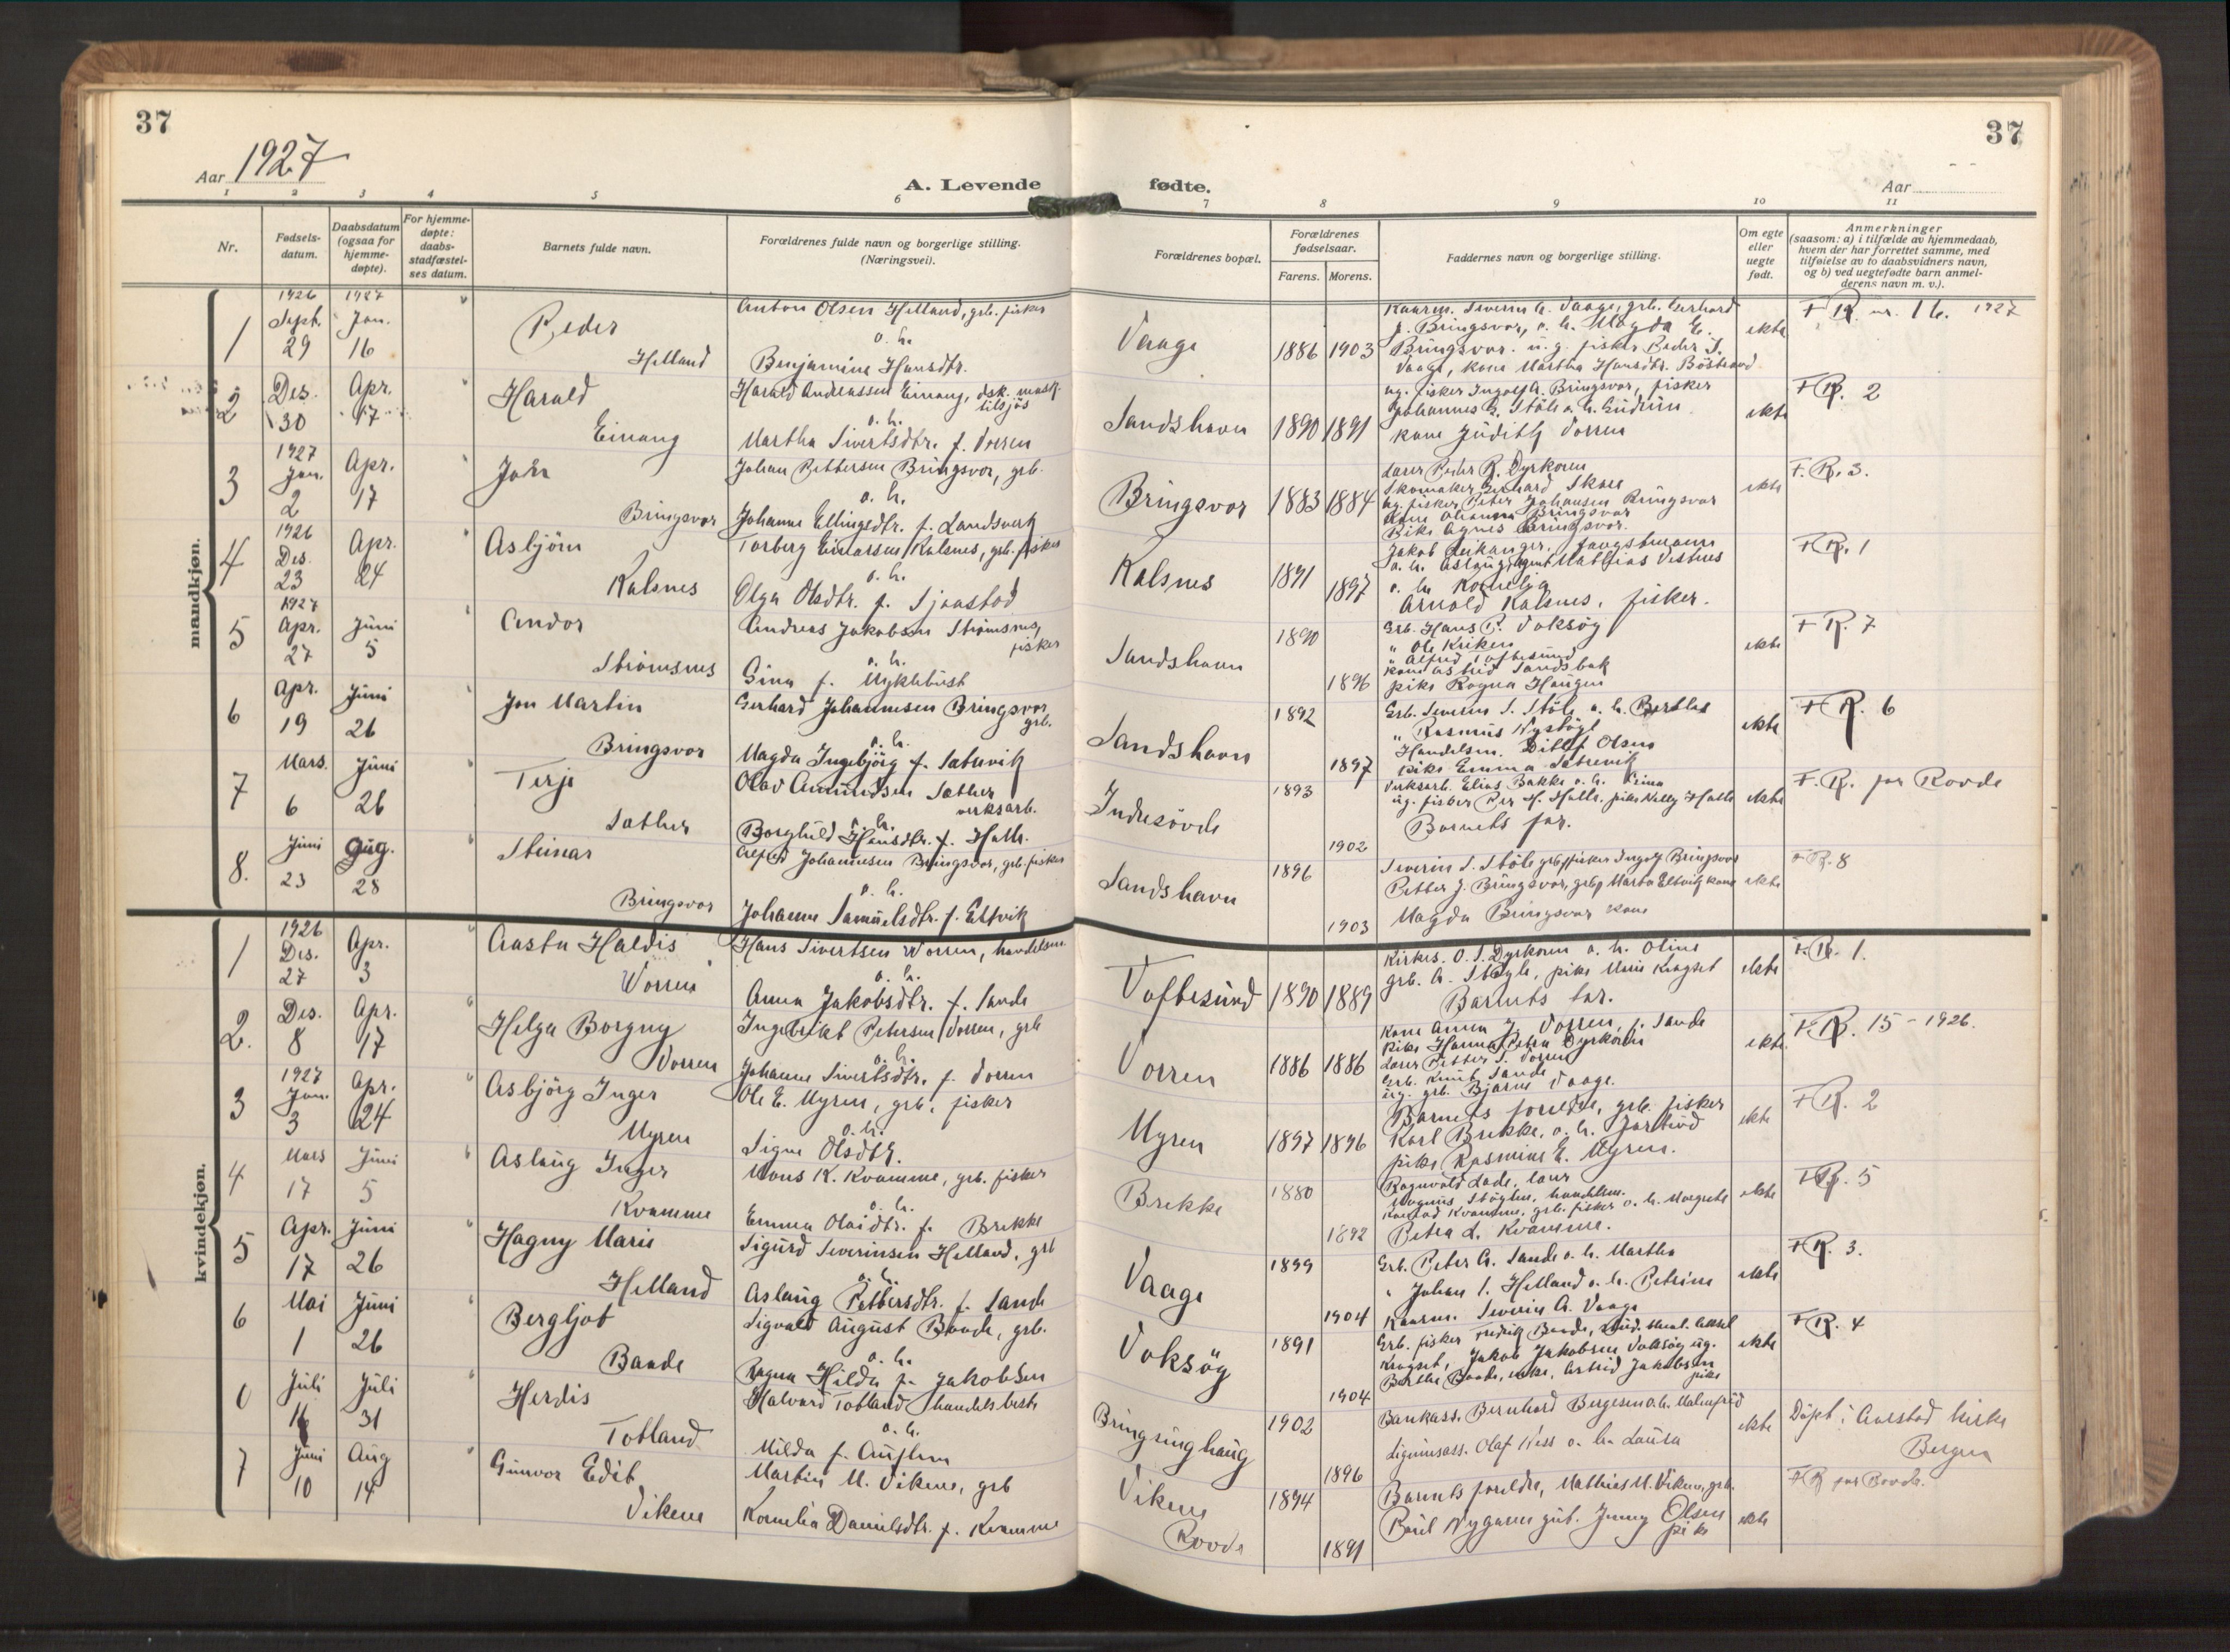 37
37
Aar 1927
A. Levende fødte.
Aar
1 2 3 4 5 6 7 8 9 10 11
Nr.
Fødsels-
datum.
Daabsdatum
(ogsaa for
hjemme-
døpte).
For hjemme-
døpte:
daabs-
stadfæstel-
ses datum.
Barnets fulde navn.
Forældrenes fulde navn og borgerlige stilling.
(Næringsvei).
Forældrenes bopæl.
Forældrenes
fødselsaar.
Farens. Morens.
Faddernes navn og borgerlige stilling.
Om egte
eller
uegte
født.
Anmerkninger
(saasom: a) i tilfælde av hjemmedaab,
hvem der har forrettet samme, med
tilføielse av to daabsvidners navn,
og b) ved uegtefødte barn anmel-
derens navn m. v.).
mandkjøn.
1 1926 Sept. 29 1927 Jan. 16 Peder Helland
Anton Olsen Helland, grb. fisker
o. h.
Benjamine Hansdtr.
Vaage 1886 1903
Severin A. Vaage, grb. Gerhard
J. Bringsvor, o. h. Magda E.
Bringsvor. u.g. fisker Peder S.
Vaage, kone Martha Hansdtr.
ekte F. R. nr. 16. 1927
2 Des. 30 Apr. 17 Harald Einang
Harald Andreassen Einang, dsk. mask.
tilsjøs
o. h.
Martha Sivertsdtr. f. Vorren
Sandshavn 1890 1891
ug. fisker Ingolf A. Bringsvor, fisker
Johannes G. Støle o. h. Gudrun
kone Judith Vorren
ekte F. R. 2
3 1927 Jan. 2 Apr. 17 John Bringsvor
Johan Pettersen Bringsvor, grb.
o. h.
Johanne Ellingsdtr. f. Landsverk
Bringsvor 1883 1884
Lærer Peder R. Dyrkoren
Skomaker Gerhard
ug. fisker Peter Johansen Bringsvor
Kone Bringsvor
Pike Agnes Bringsvor.
ekte F. R. 3.
4 1926 Des. 23 Apr. 24 Asbjørn Kalsnes
Torberg Einarsen Kalsnes, grb. fisker
o. h.
Olga Olsdtr. f. Sjaastad
Kalsnes 1891 1897
Jakob Leikanger,
o. h. Aslaug, agent Mathias Vestnes
o. h. Kornelja
Arnold Kalsnes, fisker.
F. R. 1
5 1927 Apr. 27 Juni 5 Andor Strømsnes
Andreas Jakobsen Strømsnes,
fisker
o. h.
Gina f. Myklebust
Sandshavn 1890 1896
Grb. Hans P. Voksøy
" Ole Kriken
" Alfred Toftesund
kone Astrid Sandsbak
pike Ragna Haugen
ekte F. R. 7
6 Apr. 19 Juni 26 Jon Martin Bringsvor
Gerhard Johannesen Bringsvor
grb.
o. h.
Magda Ingebjørg f. Sætrevik
Sandshavn 1892 1897
Grb. Severin S. Støle o. h. Berthe
" Rasmus Nystøyl
Handelsm. Ditlef Olsen
pike Emma Sætrevik
ekte F. R. 6
7 Mars. 6 Juni 26 Terje Sæther
Olav Amundsen Sæther
verksarb.
o. h.
Borghild Hansdtr. f. Halle.
Indresøvde 1893 1902
Verksarb. Elias Bakke o. h.
ug. fisker Per H. Halle, pike Nelly Halle
Barnets far.
ekte F. R. for Rovde
8. Juni 23 Aug. 28 Steinar Bringsvor
Alfred Johannesen Bringsvor, grb. fisker
o. h.
Johanne Samuelsdtr. f. Eltvik
Sandshavn 1896 1903
Severin S. Støle grb. fisker Ingolf Bringsvor
Petter J. Bringsvor, grb. Marta Eltvik kone
Magda Bringsvor kone
ekte F. R. 8
kvindekjøn.
1 1926 Des. 27 Apr. 3 Aasta Haldis Vorren
Hans Sivertsen Vorren, handelsm.
o. h.
Anna Jakobsdtr. f. Sande
Toftesund 1890 1889
Kirkes. O. S. Dyrkoren o. h. Oline
grb. A. Støyle, pike Marie Kragset
Barnets far.
ekte F. R. 1.
2. Des. 8 Apr. 17 Helga Borgny Vorren
Ingebrikt Petersen Vorren, grb
o. h.
Johanne Sivertsdtr. f. Vorren
Vorren 1886 1886
Kone Anna J. Vorren, f. Sande
Pike Hanna Petra Dyrkoren
Lærer Petter S. Vorren
Grb. Knut Sande
ug. grb. Bjarne Vaage.
ekte F. R. 15 - 1926.
3 1927 Jan. 3 Apr. 24 Asbjørg Inger Myren
Ole E. Myren, grb. fisker
o. h.
Signe Olsdtr.
Myren 1897 1896
Barnets foreldre, grb. fisker
Karl Brekke, o. h.
pike Rasmine E. Myren.
ekte F. R. 2
4 Mars 17 Juni 5 Aslaug Inger Kvamme
Mons K. Kvamme, grb. fisker
o. h.
Emma Olaidtr. f. Brekke
Brekke 1880 1892
Ragnvald Lade, lærer
Magnus Støylen, handelsm.
Kvamme, grb. fisker o. h. Margrete
Petra L. Kvamme.
ekte F. R. 5
5 Apr. 17 Juni 26 Hagny Marie Helland
Sigurd Severinsen Helland, grb
o. h.
Aslaug Pettersdtr. f. Sande
Vaage 1899 1904
Grb. Peter A. Sande o. h. Martha
" Johan S. Helland o. h. Petrine
Severin A. Vaage
ekte F. R. 3.
6 Mai 1 Juni 26 Bergljot Baade
Sigvald August Baade, grb.
o. h.
Ragna Hilda f. Jakobsen
Voksøy 1891 1904
Grb. fisker Fredrik Baade,
Kragset, Jakob Jakobsen Voksøy ug.
Berthe Baade, enke, Astrid Jakobsen
pike
ekte F. R. 4
0 Juli 31 Juli Herdis Totland
Halvard Totland handelsbest.
o. h.
Milda f. Auflem
Bringsinghaug 1902 1896
Bankass. Bernhard Bergesen o. h. Malmfrid
Ligningsass. Olaf Ness o. h. Laura
ekte Døpt i Aarstad kirke
Bergen
7 Juni 10 Aug 14 Gunvor Edit Vikene
Martin M. Vikene, grb
Kornelia Danielsdtr. f. Kvamme
Vikene
Rovde 1894 1891
Barnets foreldre, Mathias M. Vikene, grb.
Paul Nygaren gut. Jenny Olsen
pike
ekte F. R. for Rovde.